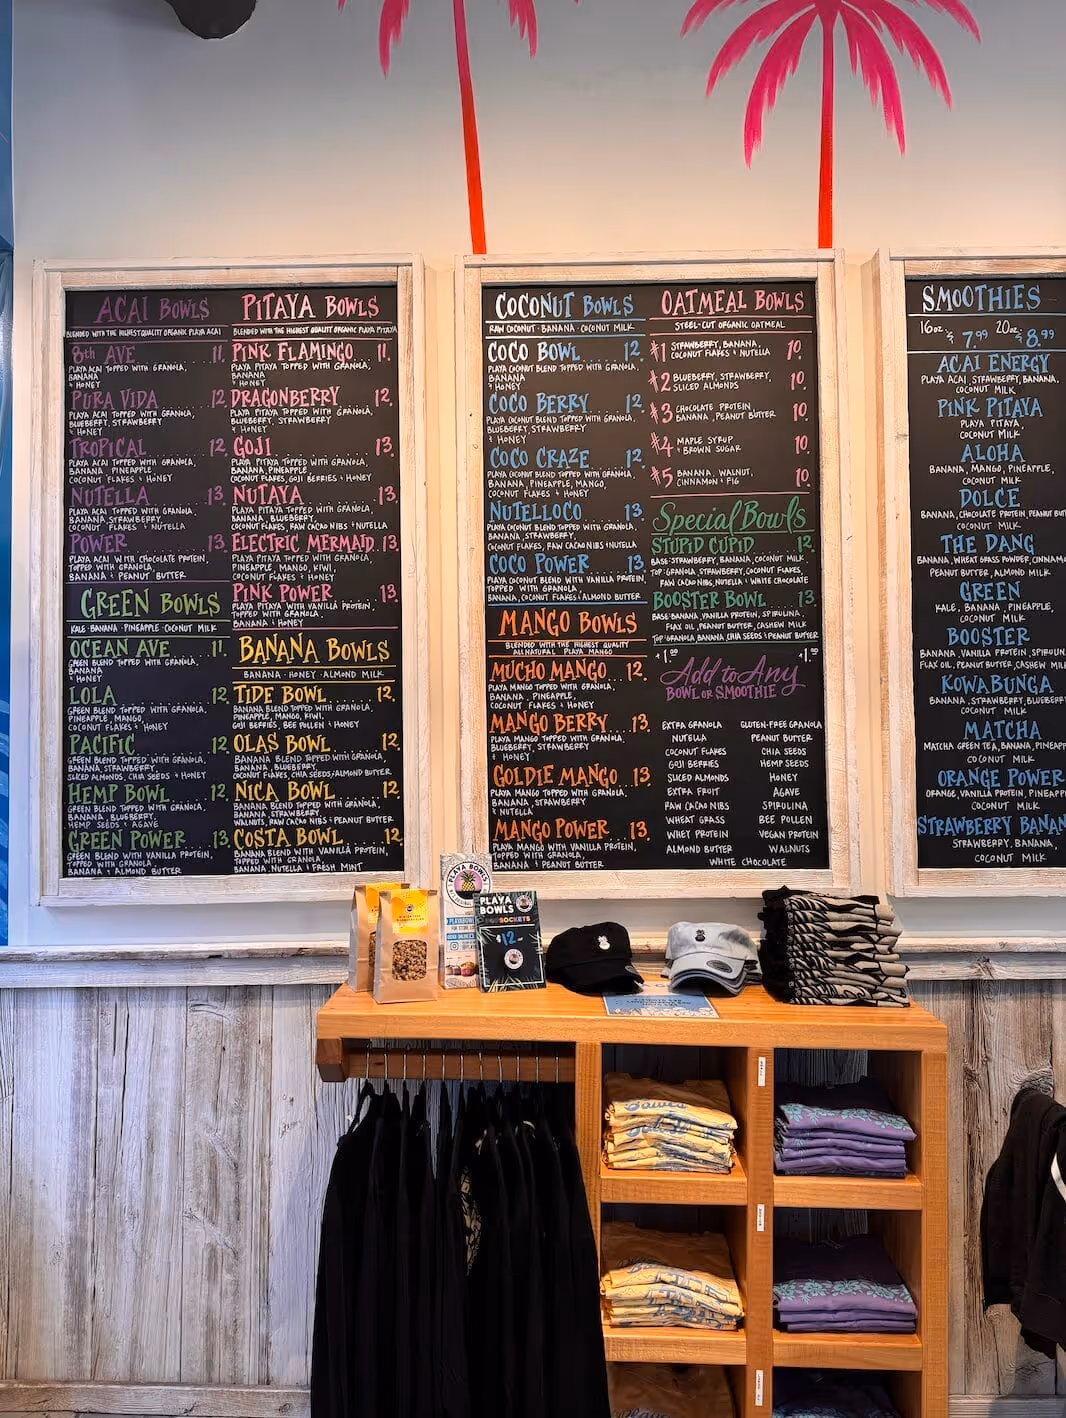 ACAI BOWLS
BLENDED WITH THE HIGHEST QUALITY ORGANIC PLAYA ACAI
8th AVE 11.
PLAYA ACAI TOPPED WITH GRANOLA,
BANANA
& HONEY
PURA VIDA 12.
PLAYA ACAI TOPPED WITH GRANOLA,
BLUEBERRY, STRAWBERRY
& HONEY
TROPICAL 12.
PLAYA ACAI TOPPED WITH GRANOLA,
BANANA, PINEAPPLE
COCONUT FLAKES & HONEY
NUTELLA 13.
PLAYA ACAI TOPPED WITH GRANOLA,
BANANA, STRAWBERRY,
COCONUT FLAKES & NUTELLA
POWER 13.
PLAYA ACAI WITH CHOCOLATE PROTEIN,
TOPPED WITH GRANOLA,
BANANA & PEANUT BUTTER
GREEN BOWLS
KALE · BANANA · PINEAPPLE · COCONUT MILK
OCEAN AVE 11.
GREEN BLEND TOPPED WITH GRANOLA,
BANANA
& HONEY
LOLA 12.
GREEN BLEND TOPPED WITH GRANOLA,
PINEAPPLE, MANGO,
COCONUT FLAKES & HONEY
PACIFIC 12.
GREEN BLEND TOPPED WITH GRANOLA,
BANANA, STRAWBERRY,
SLICED ALMONDS, CHIA SEEDS & HONEY
HEMP BOWL 12.
GREEN BLEND TOPPED WITH GRANOLA,
BANANA, BLUEBERRY,
HEMP SEEDS & AGAVE
GREEN POWER 13.
GREEN BLEND WITH VANILLA PROTEIN,
TOPPED WITH GRANOLA,
BANANA & ALMOND BUTTER
PITAYA BOWLS
BLENDED WITH THE HIGHEST QUALITY ORGANIC PLAYA PITAYA
PINK FLAMINGO 11.
PLAYA PITAYA TOPPED WITH GRANOLA,
BANANA
& HONEY
DRAGONBERRY 12.
PLAYA PITAYA TOPPED WITH GRANOLA,
BLUEBERRY, STRAWBERRY
& HONEY
GOJI 13.
PLAYA PITAYA TOPPED WITH GRANOLA,
BANANA, PINEAPPLE,
COCONUT FLAKES, GOJI BERRIES & HONEY
NUTAYA 13.
PLAYA PITAYA TOPPED WITH GRANOLA,
BANANA, BLUEBERRY,
COCONUT FLAKES, RAW CACAO NIBS & NUTELLA
ELECTRIC MERMAID 13.
PLAYA PITAYA TOPPED WITH GRANOLA,
PINEAPPLE, MANGO, KIWI,
COCONUT FLAKES & HONEY
PINK POWER 13.
PLAYA PITAYA WITH VANILLA PROTEIN,
TOPPED WITH GRANOLA,
BANANA & HONEY
BANANA BOWLS
BANANA · HONEY · ALMOND MILK
TIDE BOWL 12.
BANANA BLEND TOPPED WITH GRANOLA,
PINEAPPLE, MANGO, KIWI,
GOJI BERRIES, BEE POLLEN & HONEY
OLAS BOWL 12.
BANANA BLEND TOPPED WITH GRANOLA,
BANANA, BLUEBERRY,
COCONUT FLAKES, CHIA SEEDS & ALMOND BUTTER
NICA BOWL 12.
BANANA BLEND TOPPED WITH GRANOLA,
BANANA, STRAWBERRY,
WALNUTS, RAW CACAO NIBS & PEANUT BUTTER
COSTA BOWL 12.
BANANA BLEND WITH VANILLA PROTEIN,
TOPPED WITH GRANOLA,
BANANA, NUTELLA & FRESH MINT
COCONUT BOWLS
RAW COCONUT · BANANA · COCONUT MILK
COCO BOWL 12.
PLAYA COCONUT BLEND TOPPED WITH GRANOLA,
BANANA
& HONEY
COCO BERRY 12.
PLAYA COCONUT BLEND TOPPED WITH GRANOLA,
BLUEBERRY, STRAWBERRY
& HONEY
COCO CRAZE 12.
PLAYA COCONUT BLEND TOPPED WITH GRANOLA,
BANANA, PINEAPPLE, MANGO,
COCONUT FLAKES & HONEY
NUTELLOCO 13.
PLAYA COCONUT BLEND TOPPED WITH GRANOLA,
BANANA, STRAWBERRY,
COCONUT FLAKES, RAW CACAO NIBS & NUTELLA
COCO POWER 13.
PLAYA COCONUT BLEND WITH VANILLA PROTEIN,
TOPPED WITH GRANOLA,
BANANA, COCONUT FLAKES & ALMOND BUTTER
MANGO BOWLS
BLENDED WITH THE HIGHEST QUALITY
ALL NATURAL PLAYA MANGO
MUCHO MANGO 12.
PLAYA MANGO TOPPED WITH GRANOLA,
BANANA, PINEAPPLE,
COCONUT FLAKES & HONEY
MANGO BERRY 13.
PLAYA MANGO TOPPED WITH GRANOLA,
BLUEBERRY, STRAWBERRY
& HONEY
GOLDIE MANGO 13.
PLAYA MANGO TOPPED WITH GRANOLA,
BANANA, STRAWBERRY
& NUTELLA
MANGO POWER 13.
PLAYA MANGO WITH VANILLA PROTEIN,
TOPPED WITH GRANOLA,
BANANA & PEANUT BUTTER
OATMEAL BOWLS
STEEL-CUT ORGANIC OATMEAL
#1 STRAWBERRY, BANANA, 10.
COCONUT FLAKES & NUTELLA
#2 BLUEBERRY, STRAWBERRY, 10.
SLICED ALMONDS
#3 CHOCOLATE PROTEIN 10.
BANANA, PEANUT BUTTER
#4 MAPLE SYRUP 10.
& BROWN SUGAR
#5 BANANA, WALNUT, 10.
CINNAMON & FIG
Special Bowls
STUPID CUPID 12.
BASE: STRAWBERRY, BANANA, COCONUT MILK
TOP: GRANOLA, STRAWBERRY, COCONUT FLAKES,
RAW CACAO NIBS, NUTELLA & WHITE CHOCOLATE
BOOSTER BOWL 13.
BASE: BANANA, VANILLA PROTEIN, SPIRULINA,
FLAX OIL, PEANUT BUTTER, CASHEW MILK
TOP: GRANOLA, BANANA, CHIA SEEDS & PEANUT BUTTER
+1.00 +1.50
Add to Any
BOWL OR SMOOTHIE
EXTRA GRANOLA GLUTEN-FREE GRANOLA
NUTELLA PEANUT BUTTER
COCONUT FLAKES CHIA SEEDS
GOJI BERRIES HEMP SEEDS
SLICED ALMONDS HONEY
EXTRA FRUIT AGAVE
RAW CACAO NIBS SPIRULINA
WHEAT GRASS BEE POLLEN
WHEY PROTEIN VEGAN PROTEIN
ALMOND BUTTER WALNUTS
WHITE CHOCOLATE
SMOOTHIES
16oz 7.99 20oz 8.99
ACAI ENERGY
PLAYA ACAI, STRAWBERRY, BANANA,
COCONUT MILK
PINK PITAYA
PLAYA PITAYA,
COCONUT MILK
ALOHA
BANANA, MANGO, PINEAPPLE,
COCONUT MILK
DOLCE
BANANA, CHOCOLATE PROTEIN, PEANUT BUT
COCONUT MILK
THE DANG
BANANA, WHEAT GRASS POWDER, CINNAM
PEANUT BUTTER, ALMOND MILK
GREEN
KALE, BANANA, PINEAPPLE,
COCONUT MILK
BOOSTER
BANANA, VANILLA PROTEIN, SPIRULIN
FLAX OIL, PEANUT BUTTER, CASHEW MIL
KOWABUNGA
BANANA, STRAWBERRY, BLUEBE
COCONUT MILK
MATCHA
MATCHA GREEN TEA, BANANA, PINEAPP
COCONUT MILK
ORANGE POWER
ORANGE, VANILLA PROTEIN, PINEAP
COCONUT MILK
STRAWBERRY BANAN
STRAWBERRY, BANANA,
COCONUT MILK
PLAYA BOWLS
PLAYA
BOWLS
SOCKETS
$12